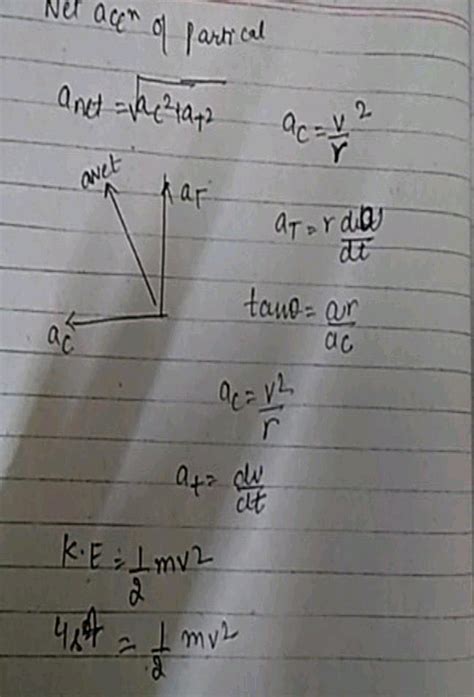 Net accn of partical
anet = √ac²+aT2
ac = v²/r
anet
aT
ac
aT = r dω/dt
tanθ = ar/ac
ac = v²/r
at = dv/dt
K.E = 1/2 mv2
= 1/2 mv2